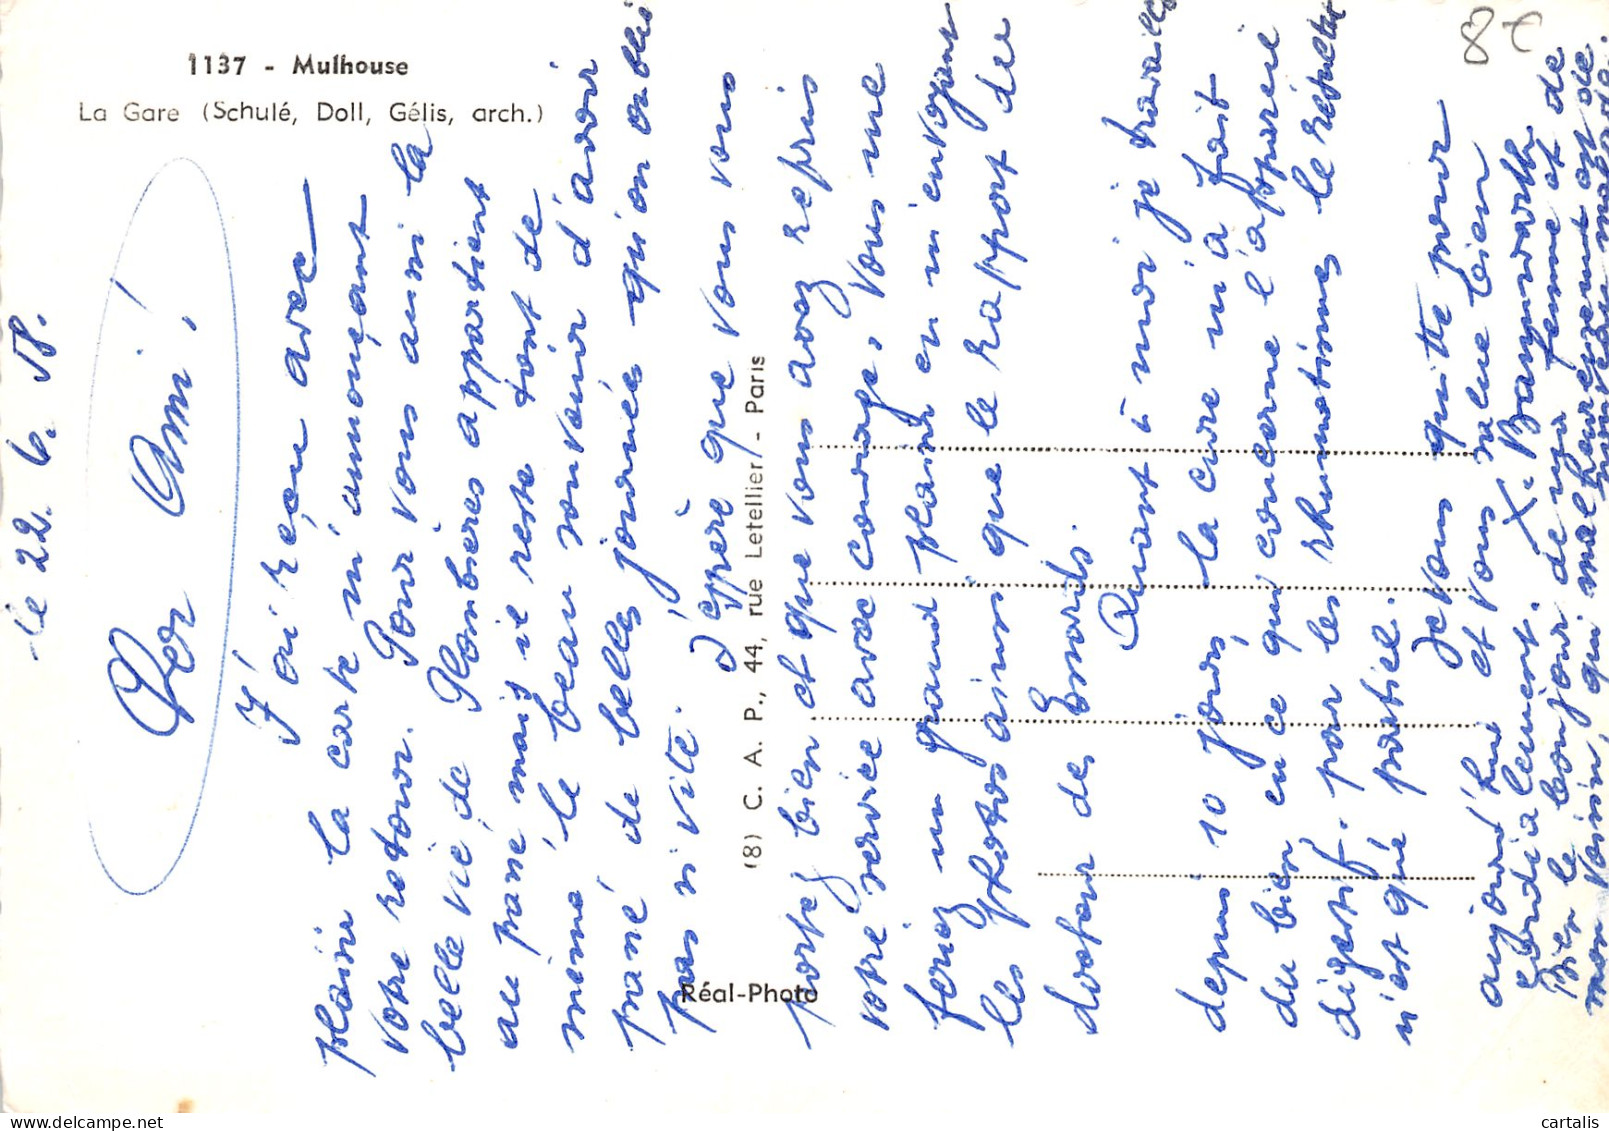 1137 - Mulhouse
La Gare (Schulé, Doll, Gélis, arch.)
8€
le 22. 6. 58.
Cher Ami !
J'ai reçu avec
plaisir la carte m'annonçant
votre retour. Pour vous aussi la
belle vie de Plombières appartient
au passé mais il reste tout de
même le beau souvenir d'avoir
passé de belles journées qu'on oublie
pas si vite.
J'espère que vous vous
portez bien et que vous avez repris
votre service avec courage. Vous me
feriez un grand plaisir en m'envoyant
les photos ainsi que le rapport du
docteur des
Quant à moi je travaille
depuis 10 jours, la cure m'a fait
du bien en ce qui concerne l'appareil
digestif. pour les rhumatismes le résultat
n'est que partiel.
Je vous quitte pour
aujourd'hui et vous salue bien
cordialement. X.
Bien le bonjour de ma femme et de
mon voisin, qui malheureusement est de
nouveau malade.
(8) C. A. P., 44, rue Letellier - Paris
Réal-Photo
cartalis